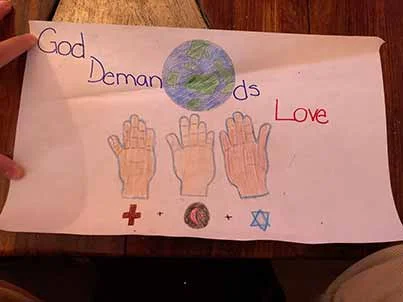 God
Demands
Love